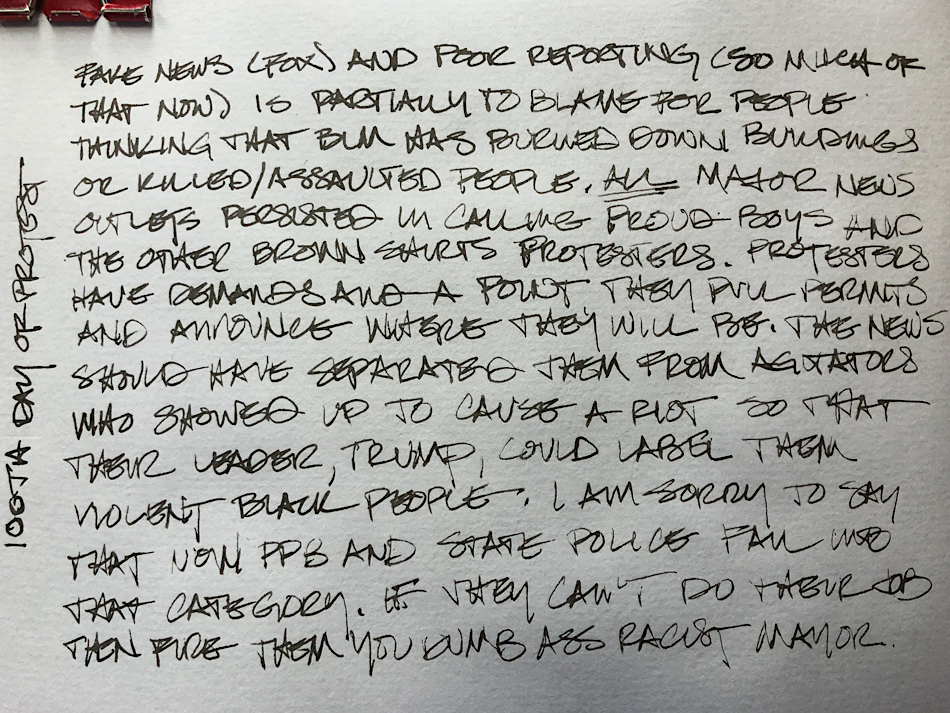 FAKE NEWS (FOX) AND POOR REPORTING (SO MUCH OF
THAT NOW) IS PARTIALLY TO BLAME FOR PEOPLE
THINKING THAT BLM HAS BURNED DOWN BUILDINGS
OR KILLED/ASSAULTED PEOPLE. ALL MAJOR NEWS
OUTLETS PERSISTED IN CALLING PROUD BOYS AND
THE OTHER BROWN SHIRTS PROTESTERS. PROTESTERS
HAVE DEMANDS AND A POINT THEY PULL PERMITS
AND ANNOUNCE WHERE THEY WILL BE. THE NEWS
SHOULD HAVE SEPARATED THEM FROM AGITATORS
WHO SHOWED UP TO CAUSE A RIOT SO THAT
THEIR LEADER, TRUMP, COULD LABEL THEM
VIOLENT BLACK PEOPLE. I AM SORRY TO SAY
THAT NOW PPB AND STATE POLICE FALL INTO
THAT CATEGORY. IF THEY CAN'T DO THEIR JOB
THEN FIRE THEM YOU DUMB ASS RACIST MAYOR.
100TH DAY OF PROTEST